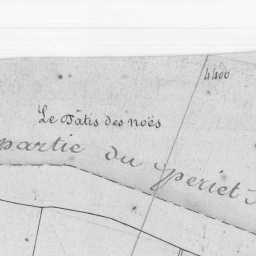 4400
Le Pâtis des noës
partie du periet